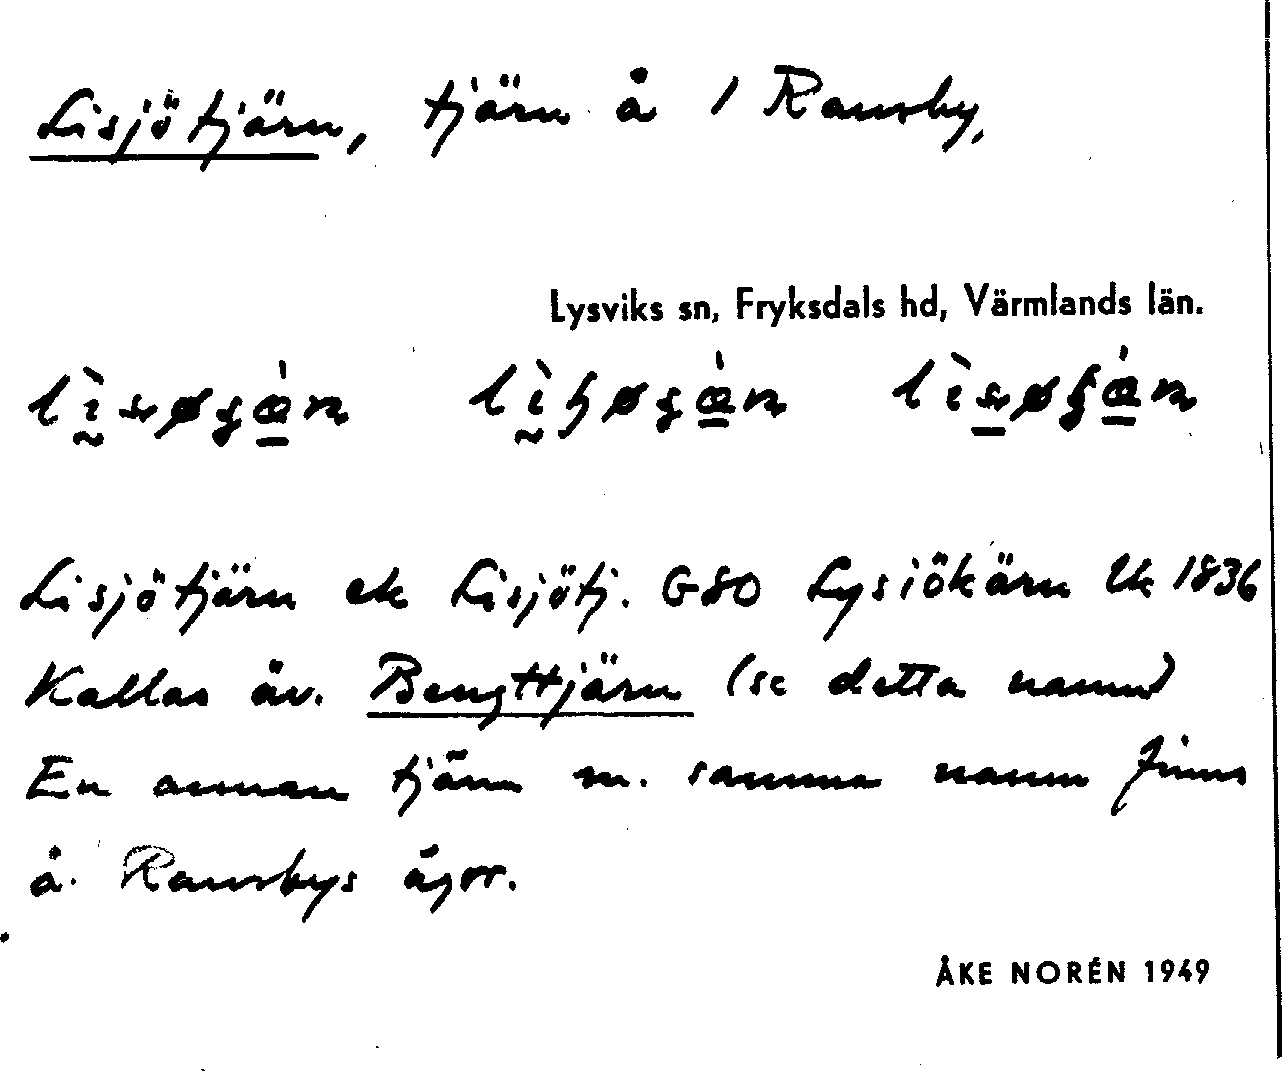 Lisjötjärn, tjärn å 1 Ransby,
Lysviks sn, Fryksdals hd, Värmlands län.
Lisjötjärn ek Lisjötj. G80 Lysiökärn Lk 1836
Kallas äv. Bengttjärn (se detta namn)
En annan tjärn m. samma namn finns
å Ransbys ägor.
ÅKE NORÉN 1949